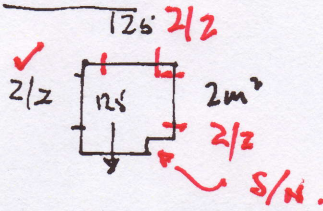 125 2/2
2/2 125 2m²
2/2
S/N.